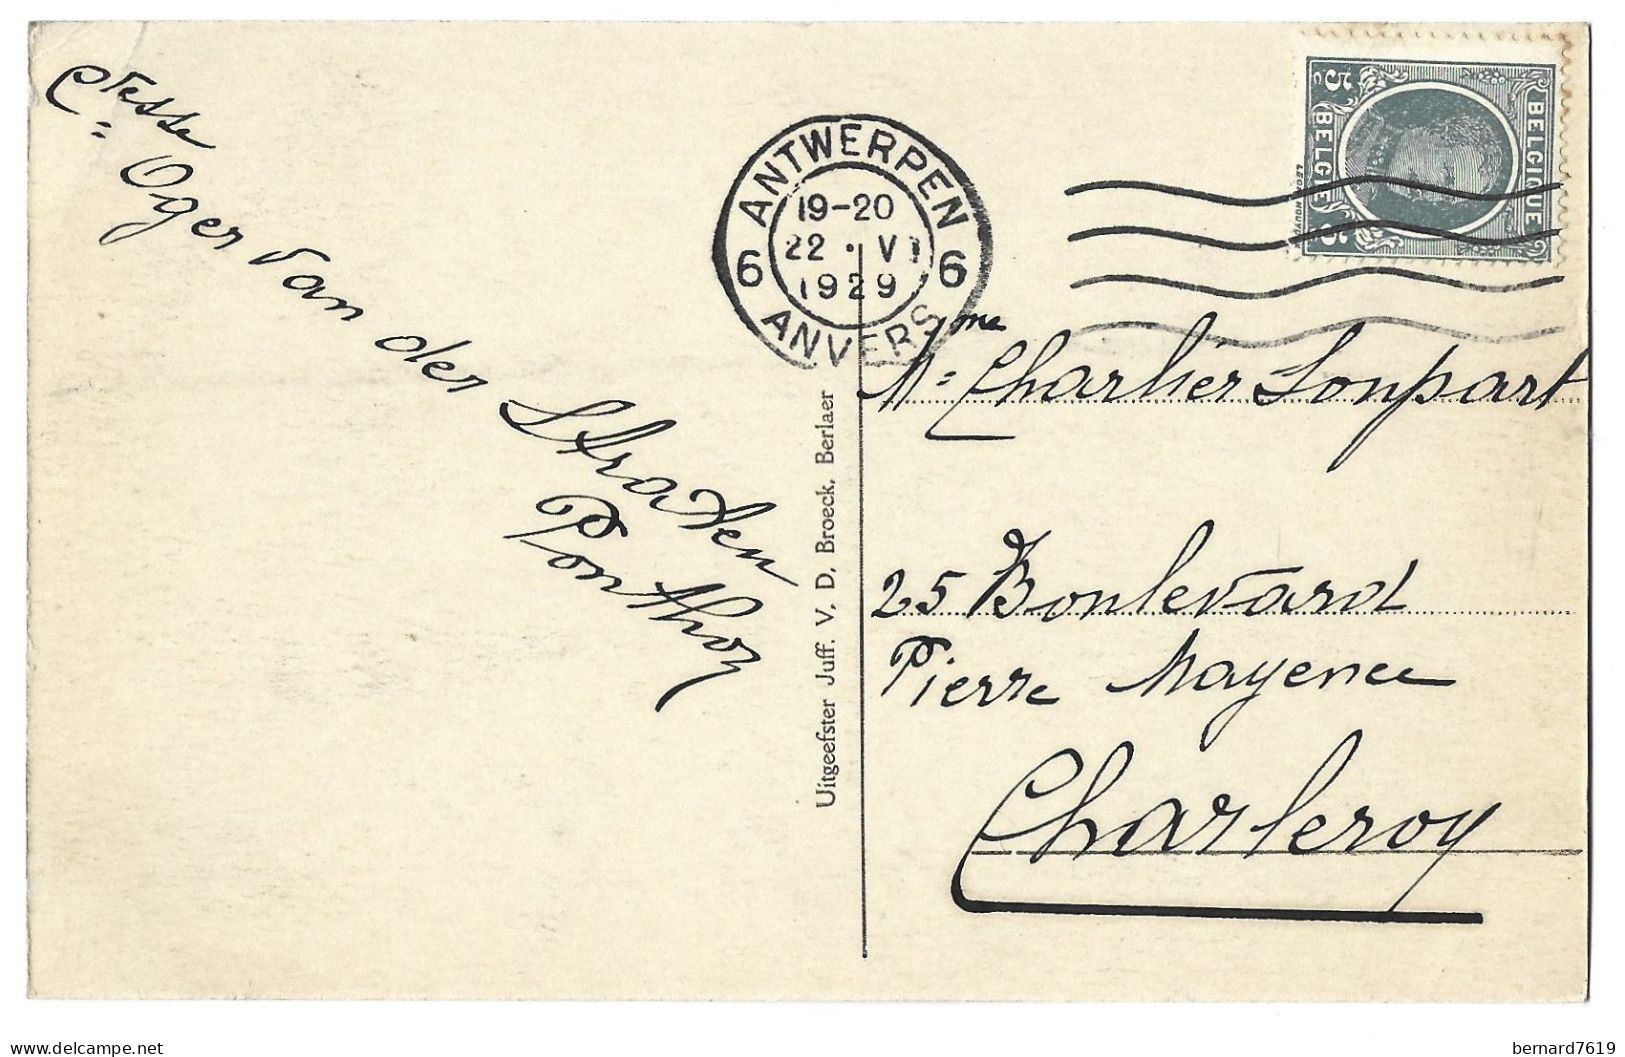 Ctesse
Oger van der Straten
Ponthoz
ANTWERPEN
19-20
22 · VI
1929
6 6
ANVERS
5 c
BELGIQUE
BELGIË
Mme Charlier Loupart
25 Boulevard
Pierre Mayence
Charleroy
Uitgeefster Juff. V. D. Broeck, Berlaer
delcampe.net
bernard7619